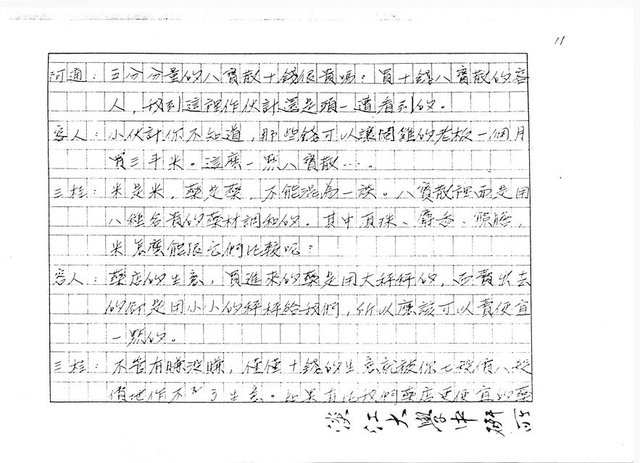 11
阿通：五分分量的八寶散十錢很貴嗎？買十錢八寶散的客
人，我到這裡作伙計還是頭一遭看到的。
客人：小伙計你不知道，那些錢可以讓開雜的老板一個月
買三平米。這麼一點八寶散…。
三桂：米是米，藥是藥，不能混為一談。八寶散裡面是用
八種名貴的藥材調和的。其中真珠、麝香、熊膽，
米怎麼能跟它們比較呢？
客人：藥店的生意，買進來的藥是用大秤秤的，而賣出去
的卻是用小小的秤秤給我們，所以應該可以賣便宜
一點的。
三桂：不管有賺沒賺，僅僅十錢的生意就被你七說八說
作不了生意。如果有比我們藥店更便宜的藥
淡江大學中研所